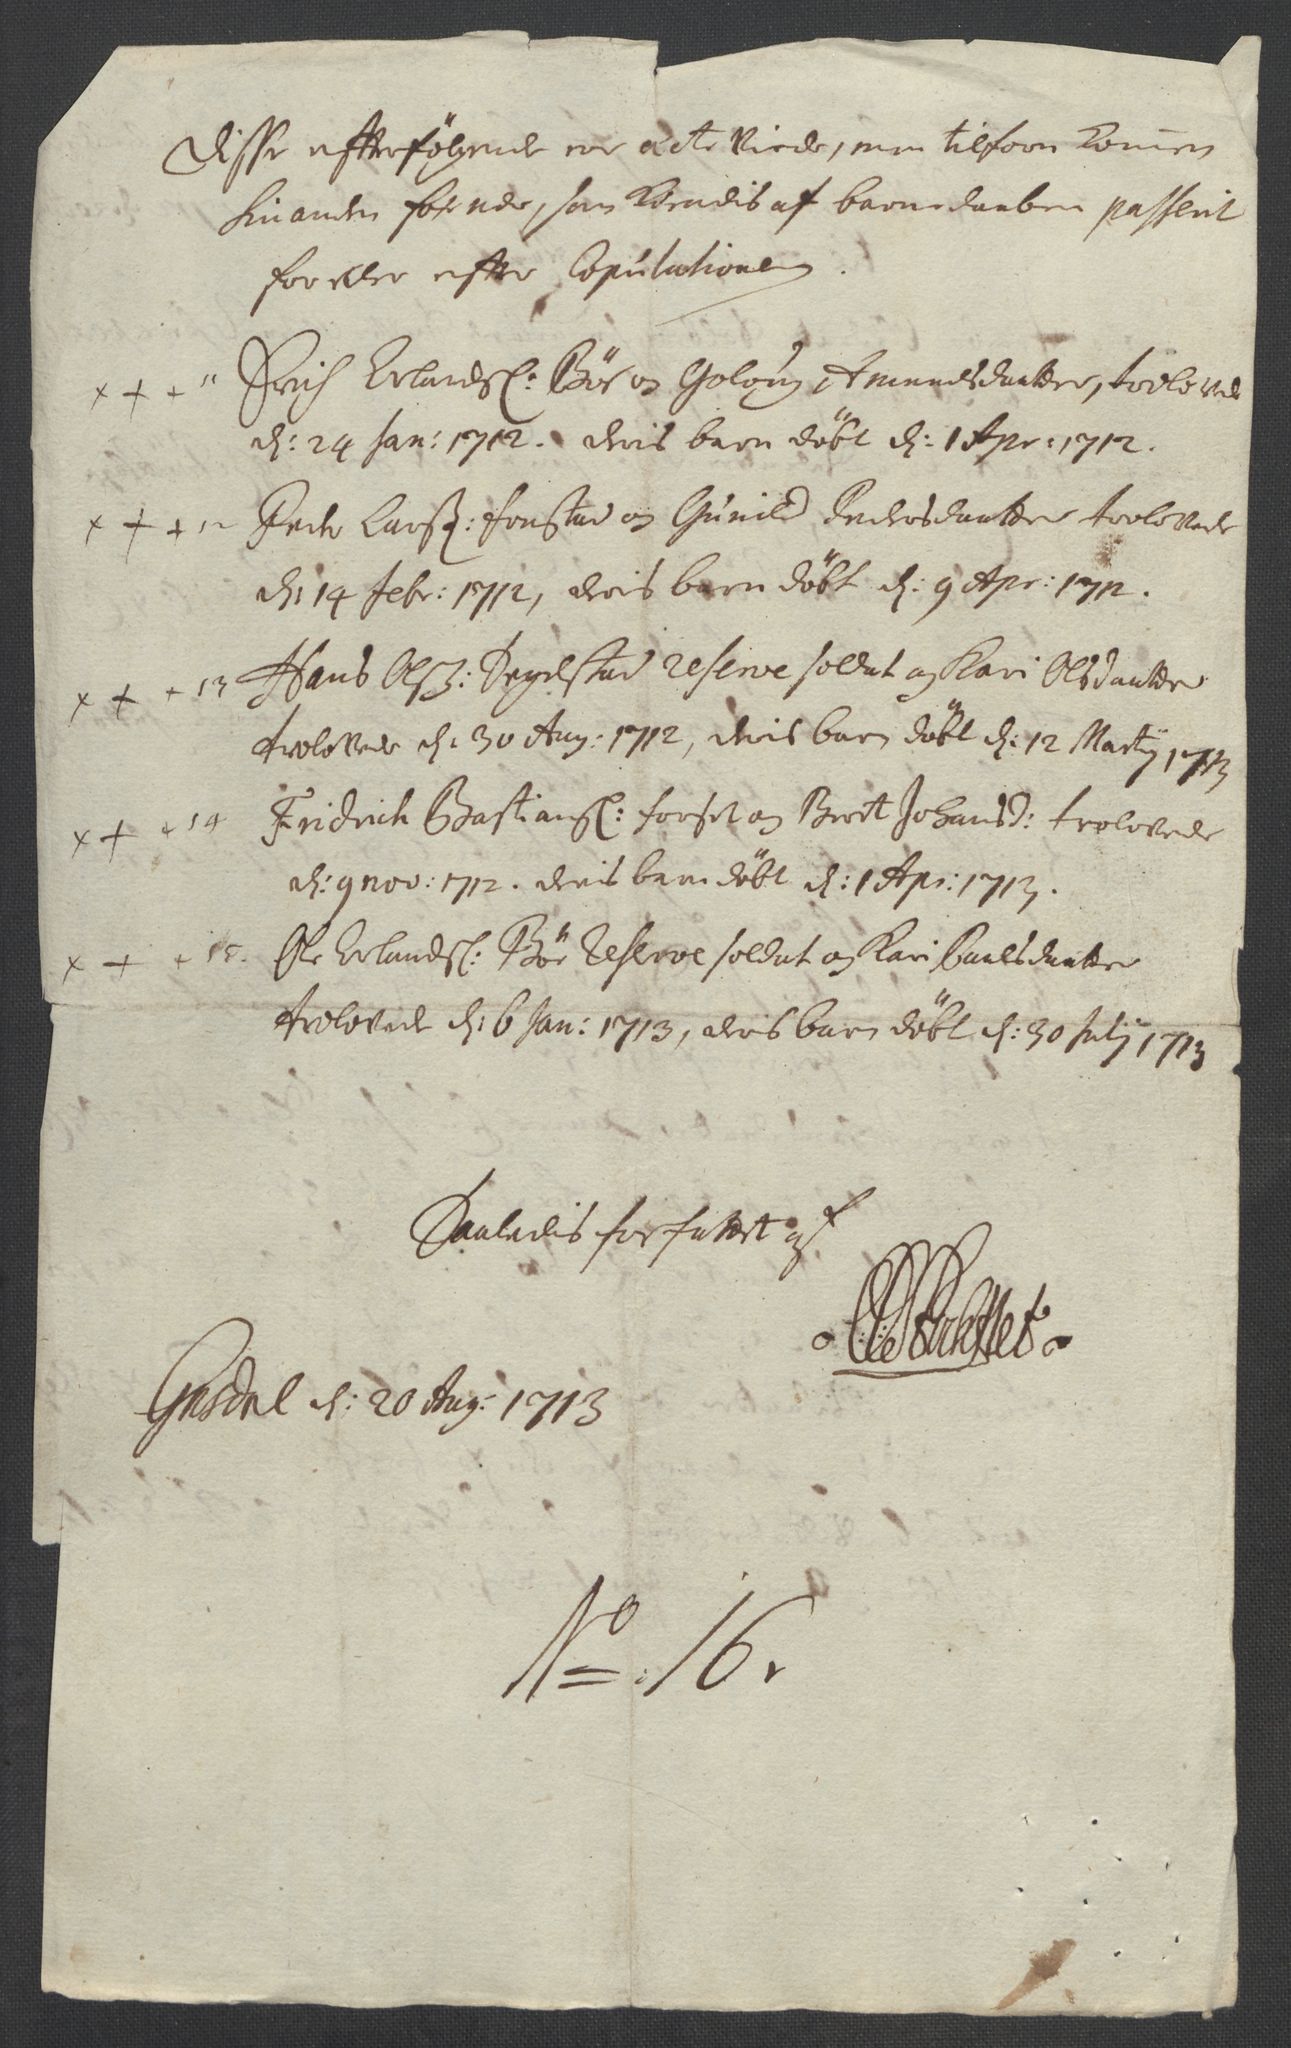 Disse efterfölgende ere ecte Viede, men tilforn kommen
hinanden for nær, som kiendis af barnedaaben passerit
for eller efter Copulationen.
x + + 11 Erich Erlandsß: Böe og Golou Amundsdaatter, trolovede
d: 24 Jan: 1712. deris barn döbt d: 1 Apr: 1712.
x + + 12 Peder Larsß: fonstad og Gunild Pedersdaatter trolovede
d: 14 febr: 1712, deris barn döbt d: 9 Apr: 1712.
x + + 13 Hans Olsß: Segelstad reserve soldat og Kari Olsdaatter
trolovede d: 30 Aug: 1712, deris barn döbt d: 12 Martij 1713
x + + 14 Fridrich Bastiansß: forset og Berit Johansd: trolovede
d: 9 nov: 1712. deris barn döbt d: 1 Apr: 1713.
x + + 15. Ole Erlandsß: Böe Reserve soldat og Kari Paalsdaatter
trolovede d: 6 Jan: 1713, deris barn döbt d: 30 Julij 1713
Saaledis forfattet af
Gusdal d: 20 Aug: 1713
No: 16.